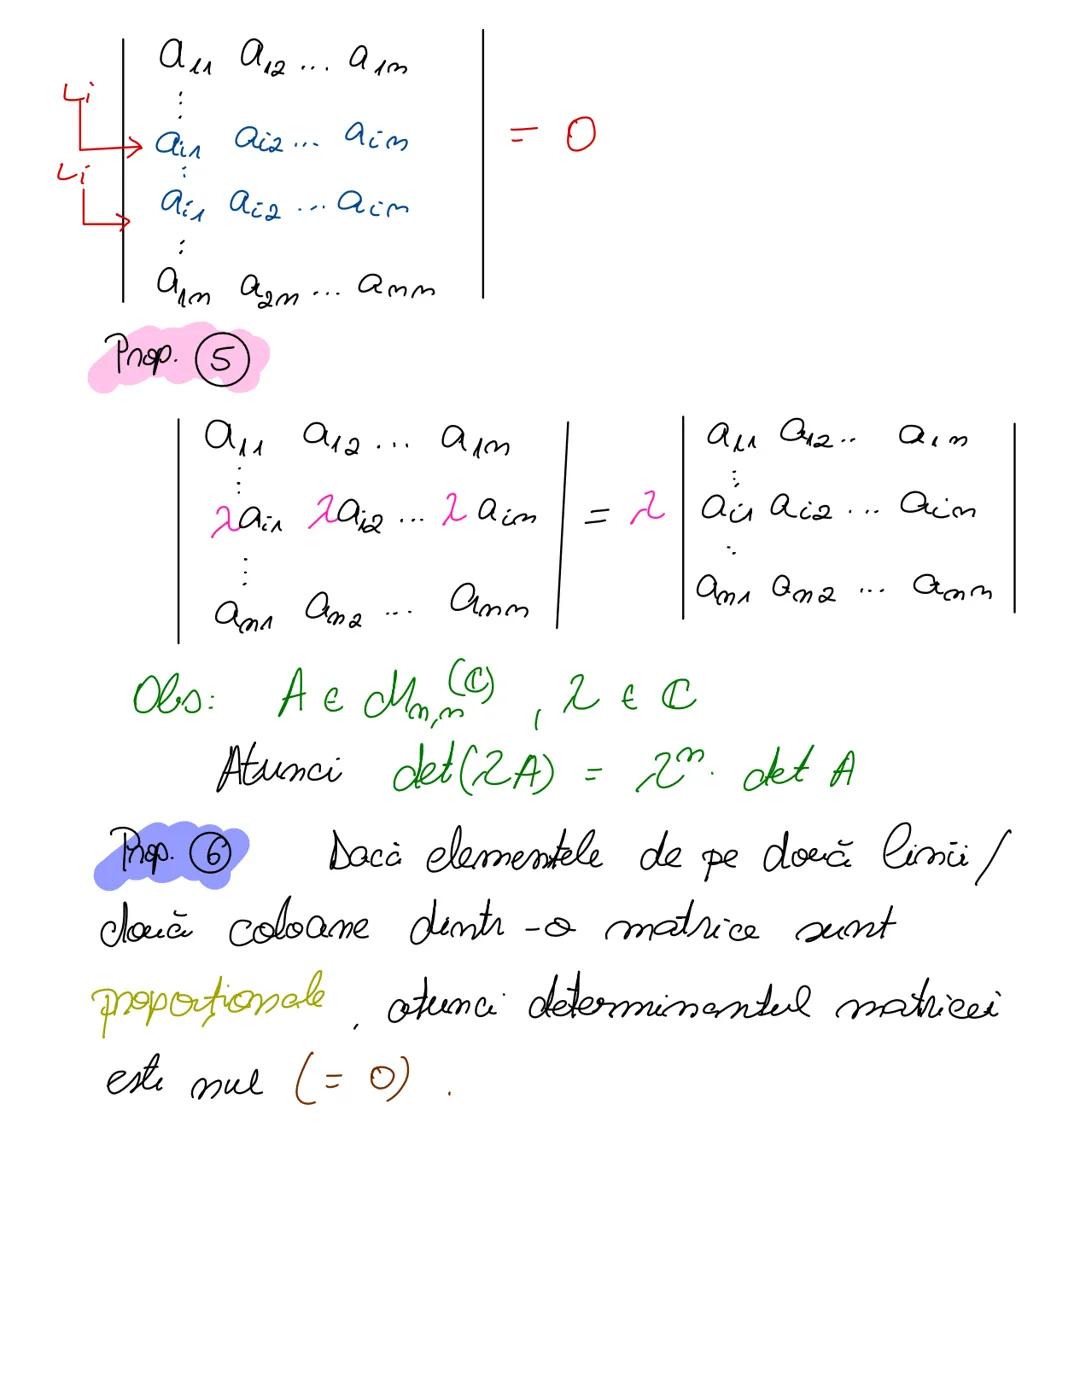 a₁₁ a₁₂ ... a₁ₙ
Li
⋮
aᵢ₁ aᵢ₂ ... aᵢₙ = 0
Li
⋮
aᵢ₁ aᵢ₂ ... aᵢₙ
⋮
a₁ₙ a₂ₙ ... aₙₙ
Prop. ⑤
| a₁₁ a₁₂ ... a₁ₙ | | a₁₁ a₁₂ .. a₁ₙ |
⋮ ⋮
| λaᵢ₁ λaᵢ₂ ... λaᵢₙ | = λ | aᵢ₁ aᵢ₂ ... aᵢₙ |
⋮ ⋮
| aₙ₁ aₙ₂ ... aₙₙ | | aₙ₁ aₙ₂ ... aₙₙ |
Obs: A ∈ Mₙ,ₙ(ℂ) , λ ∈ ℂ
Atunci det(λA) = λⁿ · det A
Prop. ⑥ Dacă elementele de pe două linii /
două coloane dintr-o matrice sunt
proporționale, atunci determinantul matricei
este nul (= 0) .